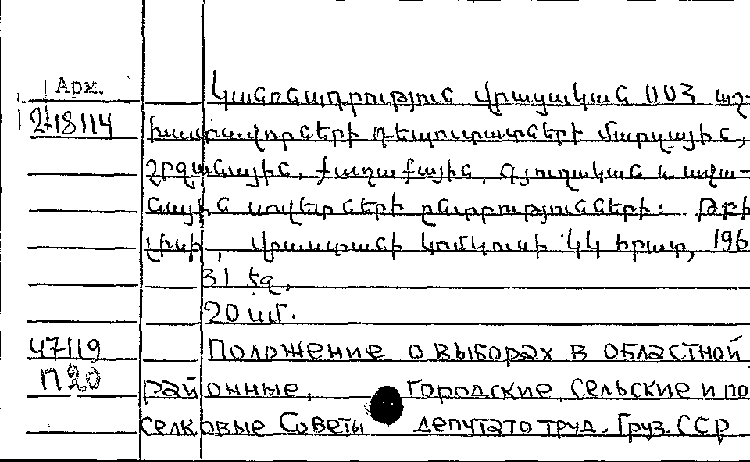 Арх.
Կանոնադրություն վրացական ՍՍՀ աշ-
2-18114
խատավորների դեպուտատների մարզային,
շրջանային, քաղաքային, գյուղական և ավա-
նային սովետների ընտրությունների: Թբի
լիսի, Վրաստանի կոմկուսի ԿԿ հրատ, 196
31 էջ.
20 սմ.
47119
Положение о выборах в областной,
п20
районные, городские, сельские и по
селковые Советы депутато труд. Груз. ССР